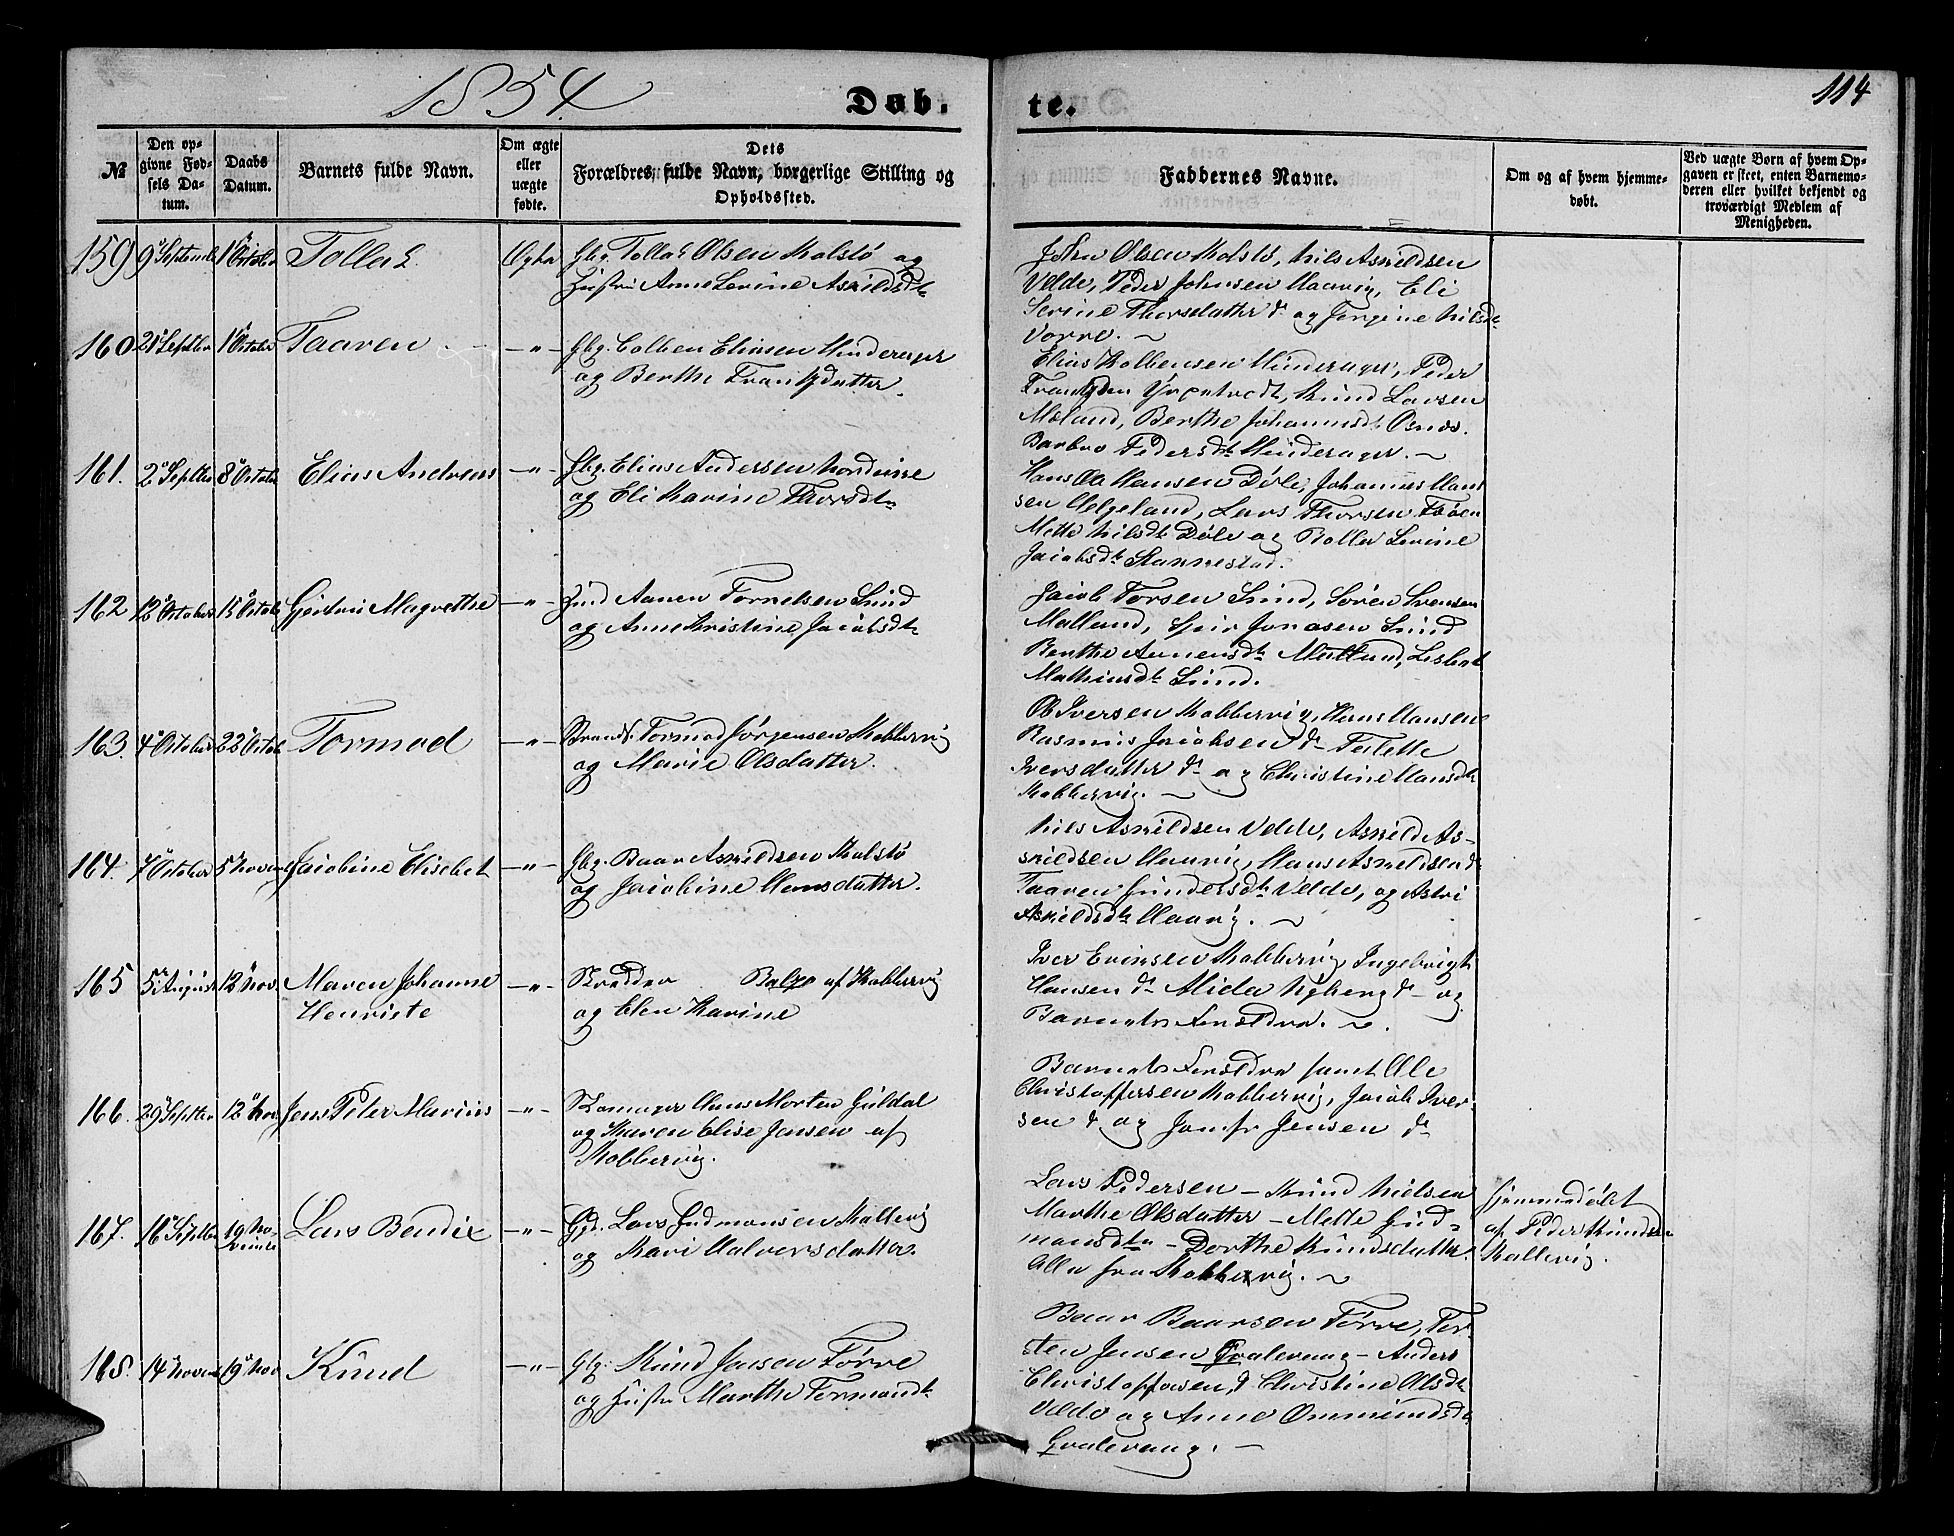 1854.
Døb.
te.
114
№
Den op-
givne Fød-
sels Da-
tum.
Daabs
Datum.
Barnets fulde Navn.
Om ægte
eller
uægte
fødte.
Dets
Forældres fulde Navn, borgerlige Stilling og
Opholdssted.
Faddernes Navne.
Om og af hvem hjemme-
døbt.
Ved uægte Børn af hvem Op-
gaven er skeet, enten Barnemo-
deren eller hvilket bekjendt og
troværdigt Medlem af
Menigheden.
159 9 Septemb 1 October Tollak Ægte Gbg. Tollak Olsen Kolstø og
Hustru Anne Serine Asvieldsdt
John Olsen Kolstø, Nils Asvieldsen
Velde, Peder Johnsen Haavig, Eli
Serine Thorsdatter do og Jørgine Nilsdt
Vorre.
160 21 Septbr 1 October Taaven -"- Gbg. Colben Eliasen Hinderager
og Berthe Frantzdatter.
Elias Kolbensen Hinderager, Peder
Frantzen, Knud Larsen
Mæland, Berthe Johannesdt Osnes.
Barbro Pedersdt Hinderager.
161. 2 Septbr 8 October Elias Andreas -"- Gbg. Elias Andersen Nordvire
og Eli Karine Thorsdt
Hans Ole Hansen Døle, Johannes Han
sen Helgeland, Lars Thorsen
Mette Nilsdt Døle og Serine
Jacobsdt Stannestad.
162 12 October 15 October Gjertrui Magrethe -"- Hmd Aanen Tornelsen Sund
og Anne Kristine Jacobsdt
Jacob Torsen Sund, Søren Svensen
Malland, Geir Jonasen Sund
Berthe Aanensdt Malland, Lisbet
Mathiasdt Sund.
163. 4 October 22 Octob Tormod -"- Strands. Tormod Jørgensen Kobbervig
og Marie Olsdatter.
Ole Iversen Kobbervig, Hans Hansen
Rasmus Jacobsen do
Iversdatter do og Christine Hansdt
Kobbervig.
164. 7 October 5 Novemb Jacobine Elisebet -"- Gbg. Baar Asvieldsen Kolstø
og Jacobine Hansdatter.
Nils Asvieldsen Velde, Asvield As-
vieldsen Haavig, Hans Asvieldsen do
Taaven Gundersdt Velde, og Astri
Asvieldsdt Haavig.
165 5 August 12 Nov. Maren Johanne -"- Skrædder Balze af Kobbervig
Henriete
og Elen Karine
Iver Evinsen Kobbervig Ingebrigt
Hansen do Mida Nyberg do og
Barnets Forældre.
166. 29 Septbr 12 Nov Jens Peter Marius -"- Skomager Hans Morten Guldal
og Karen Elise Jensen af
Kobbervig.
Barnets Forældre samt Ole
Christoffersen Kobbervig, Jacob Iver
sen do og Jomfr Jensen do
167. 16 Septbr 19 No-
vembr Lars Bendix -"- Gpd. Lars Gudmonsen Kallevig
og Kari Halversdatter
Lars Pedersen - Knud Nielsen
Marthe Olsdatter - Mette Gud-
monsdtr - Dorthe Knudsdatter
Alle fra Kobbervig.
hjemmedøbt
af Peder Knudsen
Kallevig.
168. 14 Novemb 19 Nov Knud -"- Gbg. Knud Jensen Førre
og Hustr Marthe Tormondt
Baar Baarsen Førre, Tor-
sten Jensen Gvalevaag - Anders
Christoffersen do Christine Olsdt
Velde og Anne Ommundsdt
Gvalevaag.